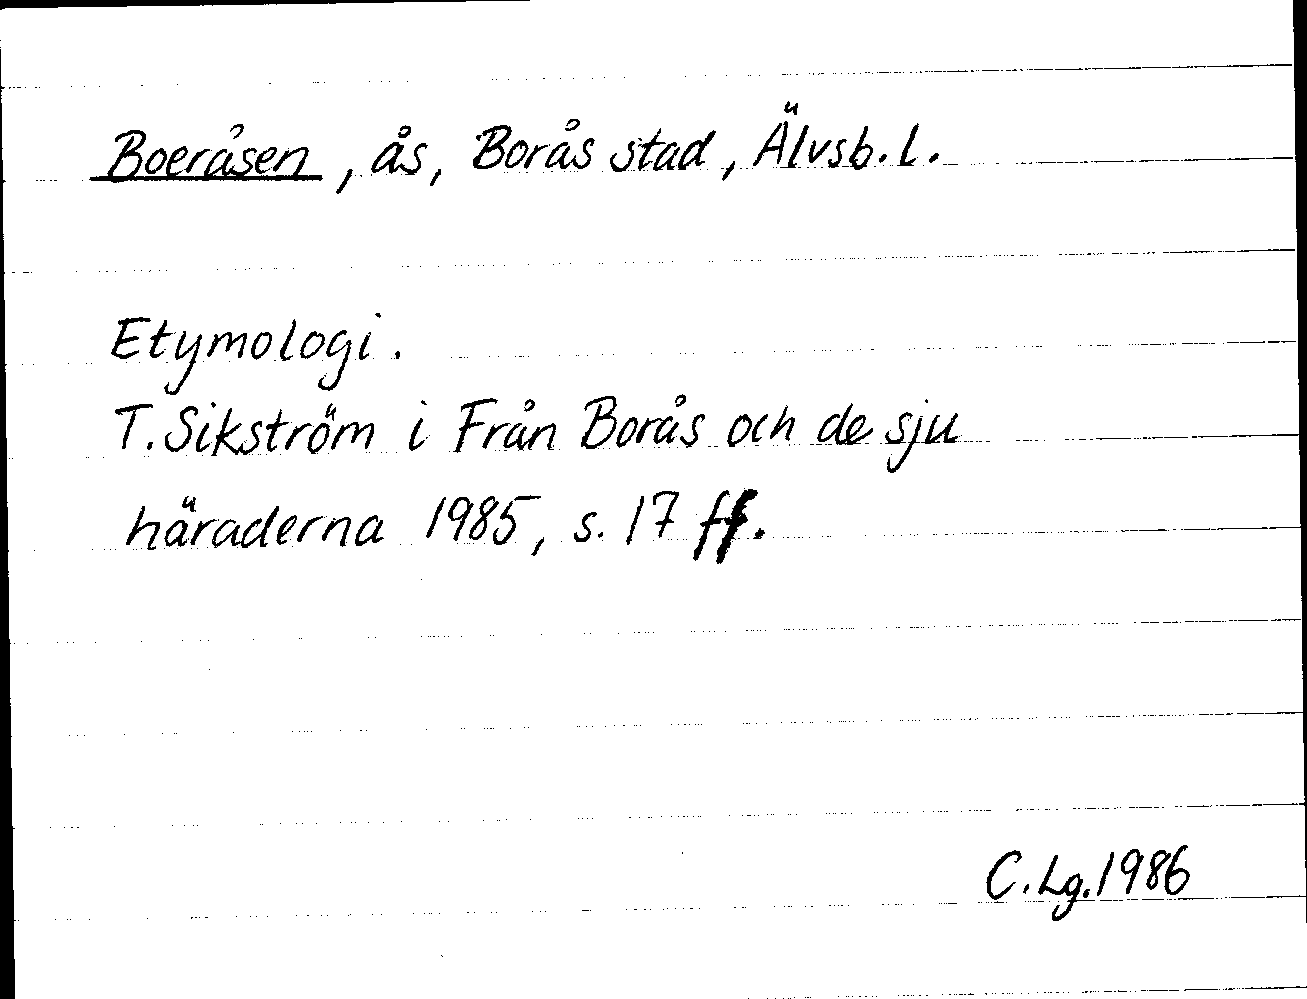 Boeråsen, ås, Borås stad, Älvsb. l.
Etymologi.
T. Sikström i Från Borås och de sju
häraderna 1985, s. 17 ff.
C. Lg. 1986